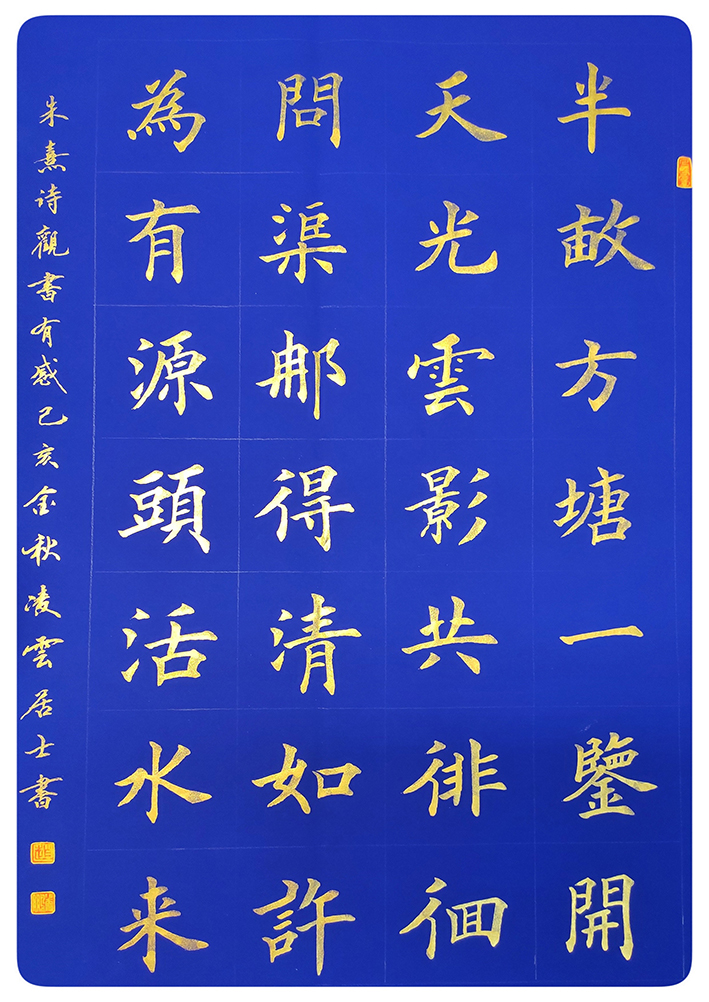 半畝方塘一鑒開
天光雲影共徘徊
問渠那得清如許
為有源頭活水来
朱熹诗觀書有感己亥金秋凌雲居士書